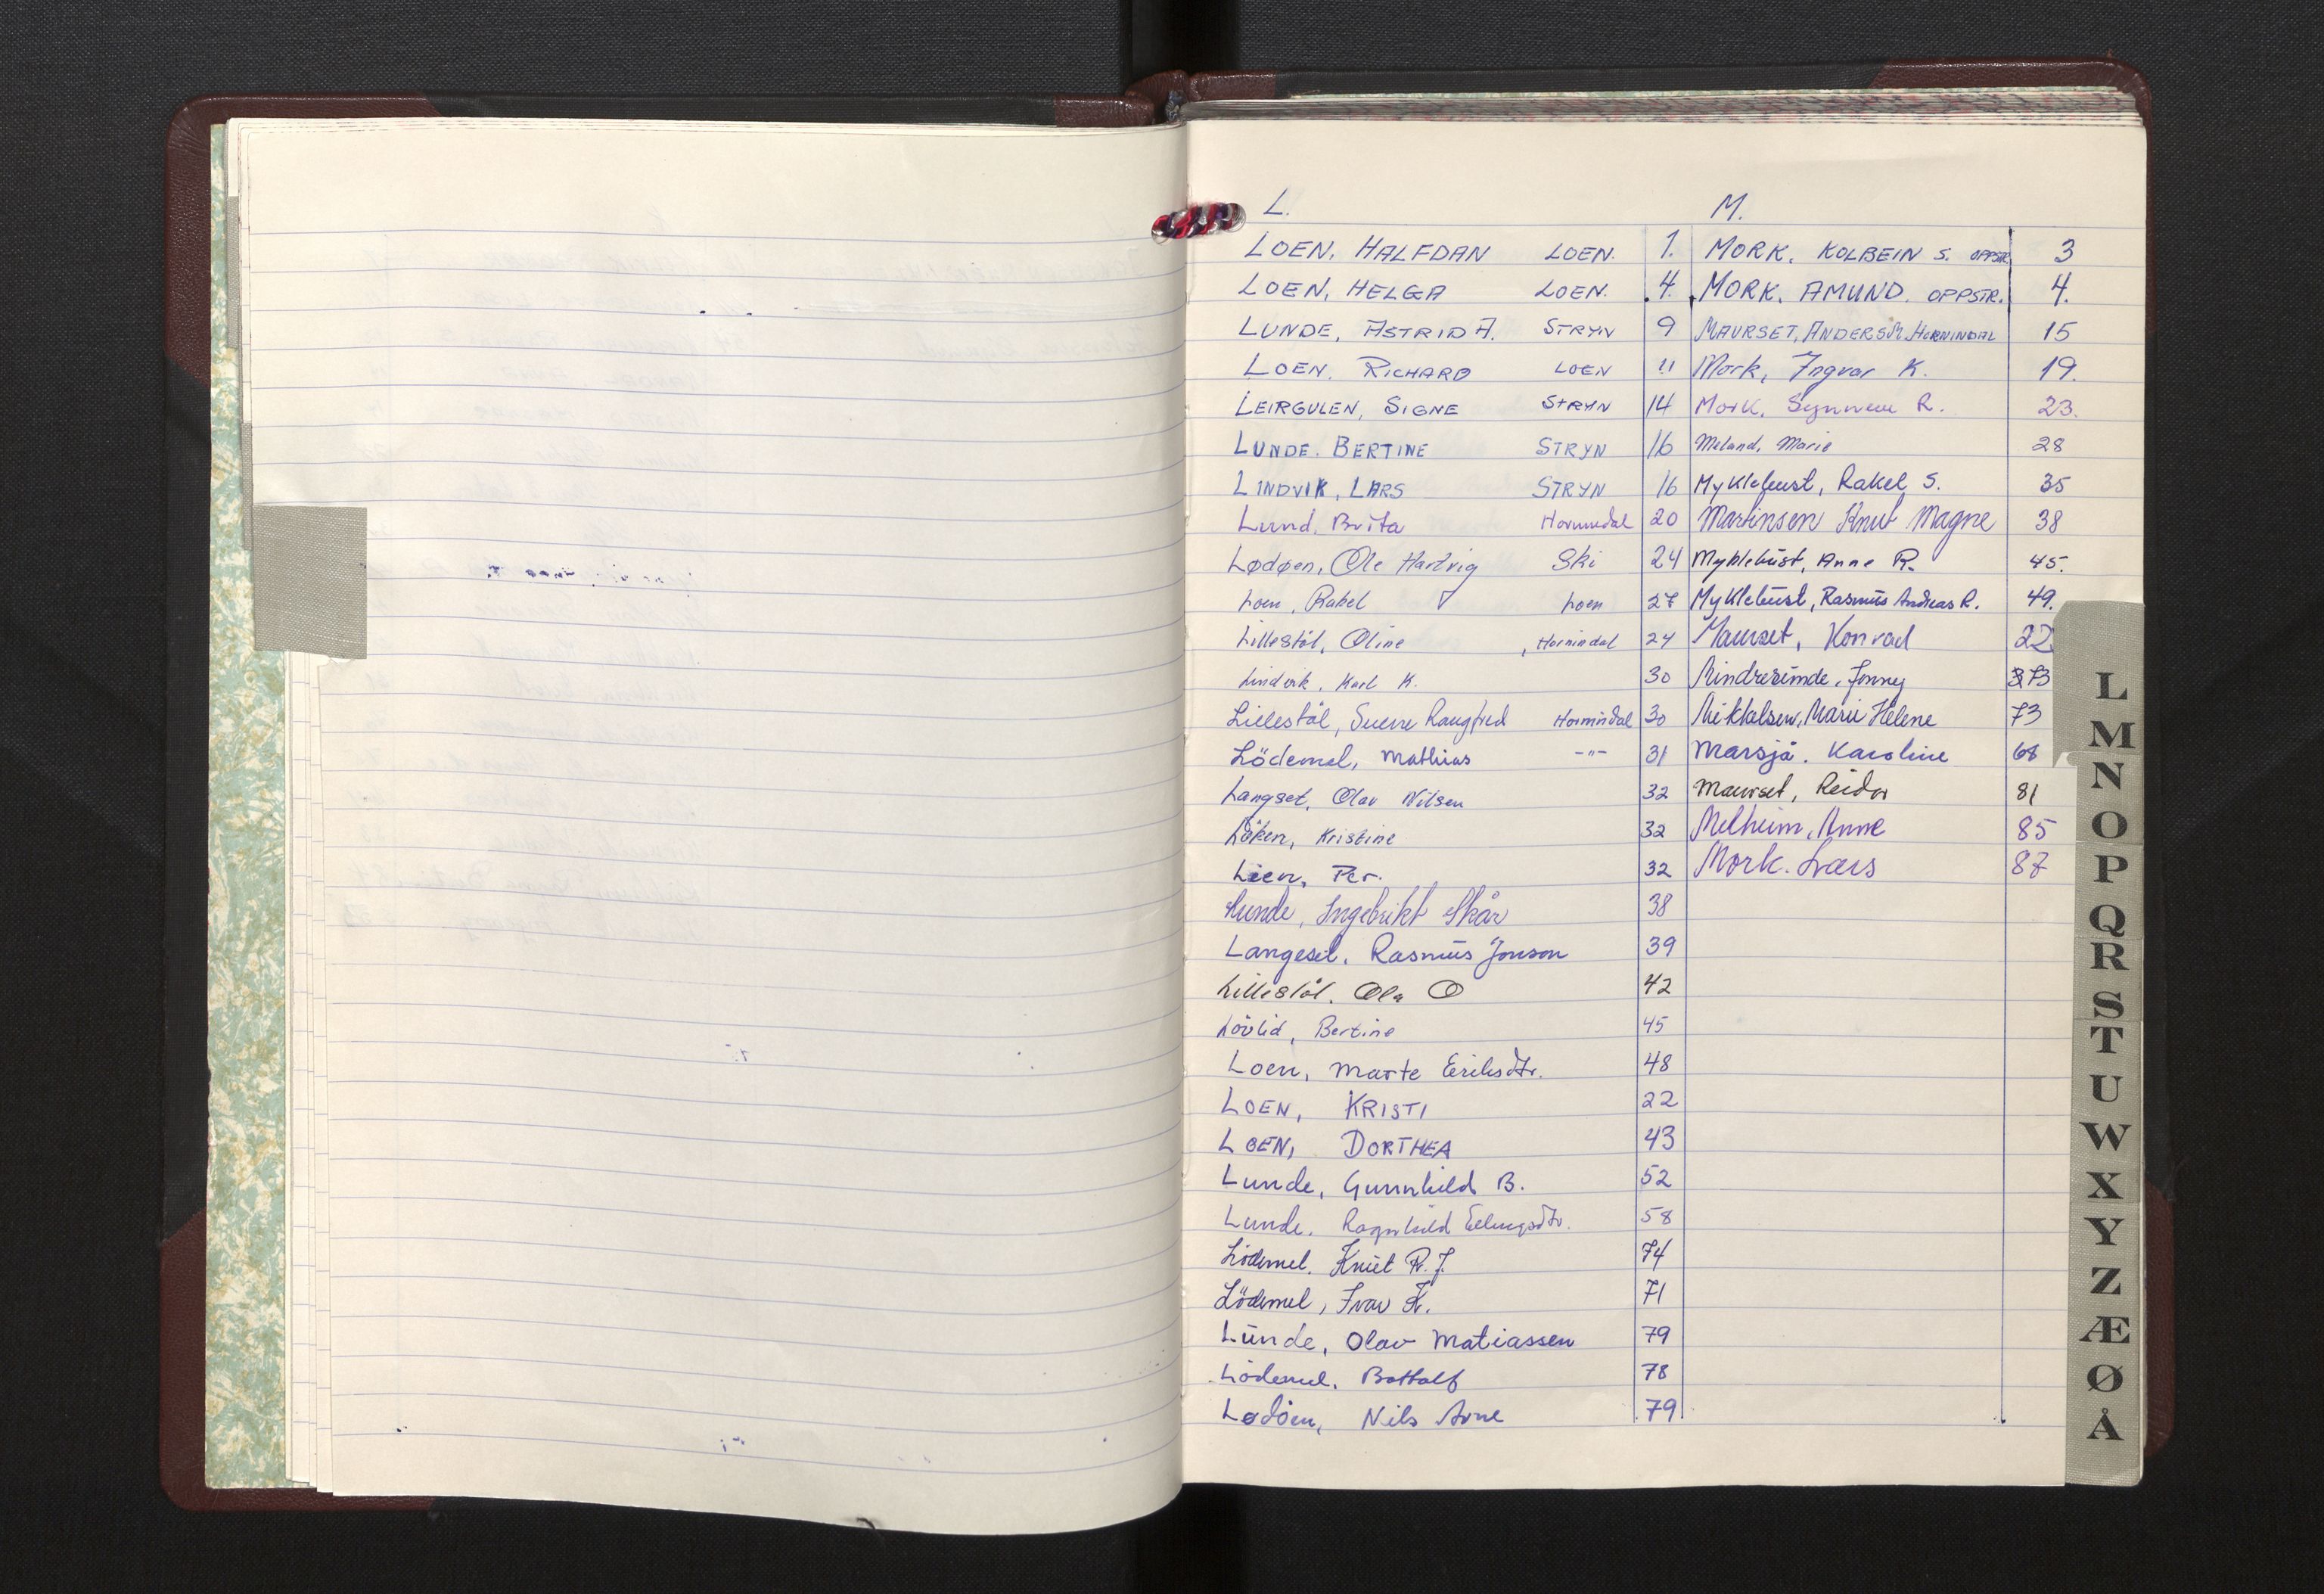 L.
LOEN, HALFDAN LOEN. 1.
LOEN, HELGA LOEN. 4.
LUNDE, ASTRID A. STRYN 9
LOEN. RICHARD LOEN 11
LEIRGULEN, SIGNE STRYN 14
LUNDE. BERTINE STRYN 16
LINDVIK, LARS STRYN 16
Lund, Brita Hornindal 20
Lødøen, Ole Hartvig Ski 24
Loen, Rakel Loen 27
Lillestöl, Oline , Hornindal 24
Lindvik, Karl K. 30
Lillestöl, Sverre Hornindal 30
Lödemel, Mathias -"- 31
Langset, Olav Nilsen 32
Löken, Kristine 32
Lien, Per. 32
Lunde, Ingebrikt Skår 38
Langeset, Rasmus Jonson 39
Lillestöl. Ola O 42
Lövlid, Bertine 45
Loen, Marte Eriksdtr. 48
LOEN, KRISTI 22
LOEN, DORTHEA 43
Lunde, Gunnhild B. 52
Lunde. Ragnhild Ellingsdtr. 58
Lödemel. Knut R.J. 74
Lödemel, Ivar K. 71
Lunde, Olav Matiassen 79
Lödemel. Bottolf 78
Lødöen, Nils Arne 79
M.
MORK, KOLBEIN S. OPPSTR. 3
MORK, AMUND. OPPSTR. 4.
MAURSET, ANDERS HORNINDAL 15
Mork, Ingvar K. 19.
Mork, Synneve R. 23.
Meland, Marie 28
Myklebust, Rakel S. 35
Martinsen Knut Magne 38
Myklebust, Anne R. 45.
Myklebust, Rasmus Andreas R. 49.
Maurset, Konrad 22
Mindresunde, Jonny 73
Mikkelsen, Marie Helene 73
Marsjå. Karoline 68
Maurset, Reidar 81
Melheim, Anne 85
Mork. Lars 87
L
M
N
O
P
Q
R
S
T
U
W
X
Y
Z
Æ
Ø
Å